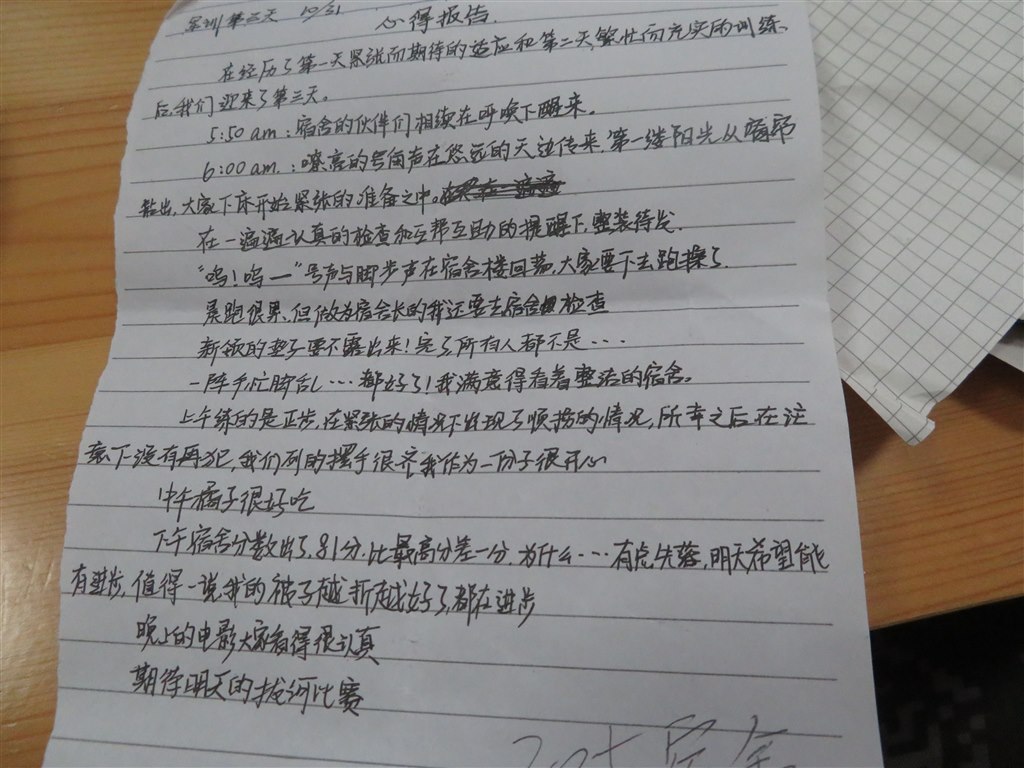 军训第三天 10/31 心得报告.
在经历了第一天紧张而期待的适应和第二天繁忙而充实的训练
后,我们迎来了第三天。
5:50 am:宿舍的伙伴们相继在呼唤下醒来。
6:00 am:嘹亮的号角声在悠远的天边传来,第一缕阳光从窗帘
钻出,大家下床开始紧张的准备之中。
在一遍遍认真的检查和互帮互助的提醒下,整装待发.
“呜!呜—”号声与脚步声在宿舍楼回荡,大家要下去跑操了.
晨跑很累,但做为宿舍长的我还要去宿舍检查
新领的垫子要不露出来!完了所有人都不是···
一阵手忙脚乱···都好了!我满意得看着整洁的宿舍。
上午练的是正步,在紧张的情况下出现了顺拐的情况,所幸之后在注
意下没有再犯,我们列的摆手很齐我作为一份子很开心
中午橘子很好吃
下午宿舍分数出了,81分,比最高分差一分,为什么···有点失落,明天希望能
有进步,值得一说,我的被子越折越好了,都在进步
晚上的电影大家看得很认真
期待明天的拔河比赛